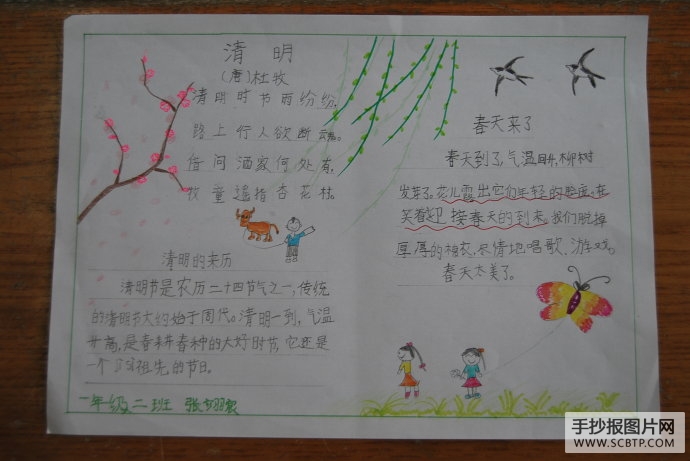 清明
(唐)杜牧
清明时节雨纷纷,
路上行人欲断魂。
借问酒家何处有,
牧童遥指杏花村。
清明的来历
清明节是农历二十四节气之一,传统
的清明节大约始于周代。清明一到,气温
升高,是春耕春种的大好时节,它还是
一个祖先的节日。
一年级二班 张
春天来了
春天到了,气温回升,柳树
发芽了。花儿露出它们年轻的脸庞,在
笑着迎接春天的到来。我们脱掉
厚厚的棉衣,尽情地唱歌、游戏。
春天太美了。
手抄报图片网
WWW.SCBTP.COM